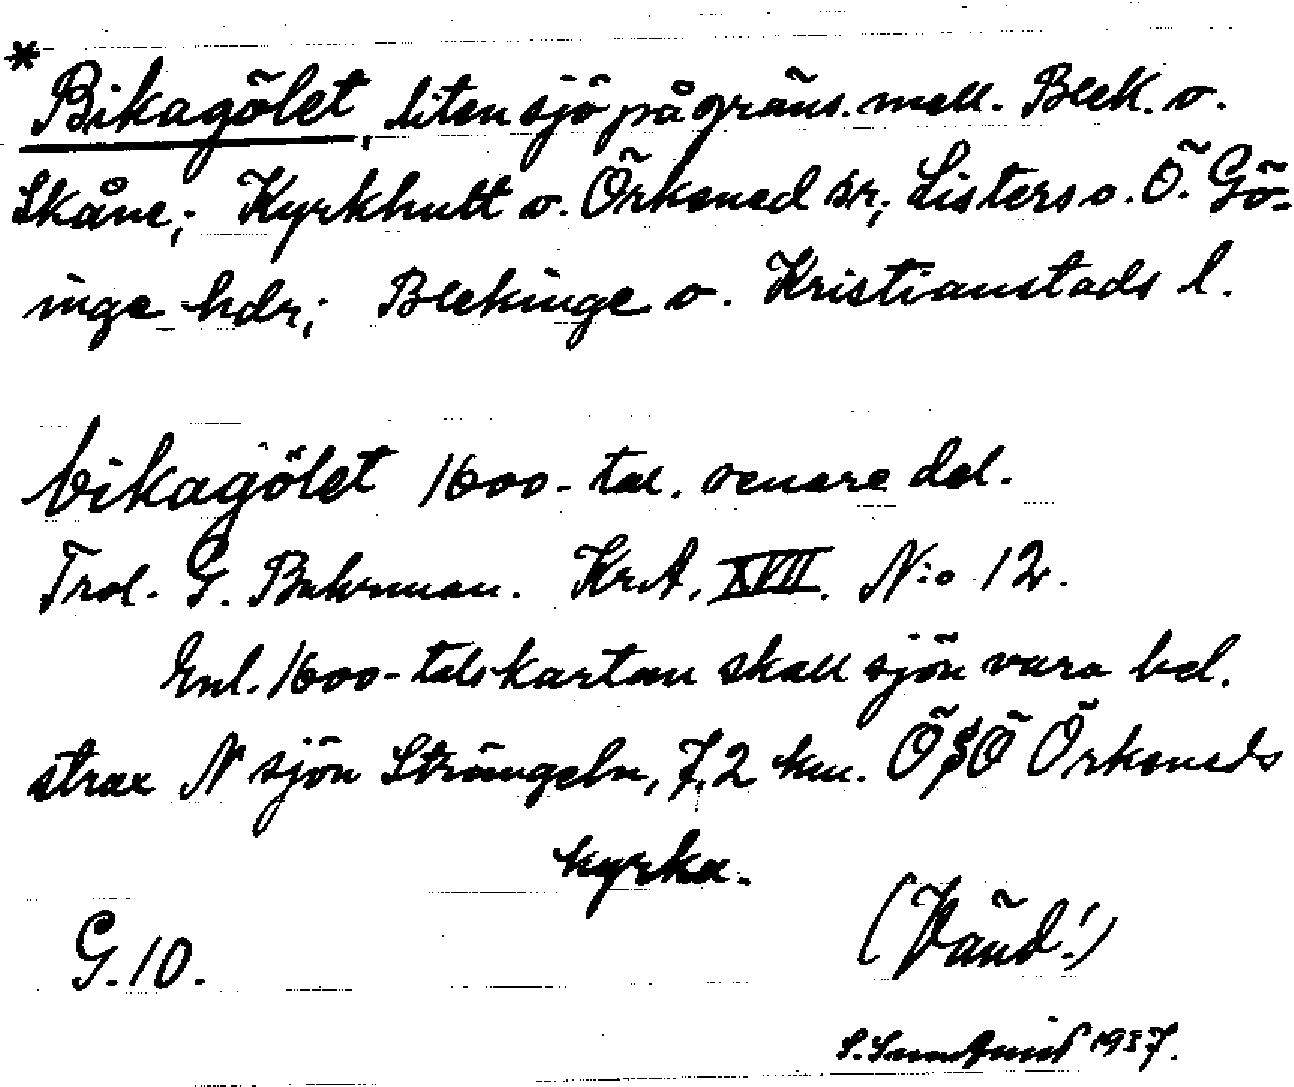 * Bikagölet, liten sjö på gräns. mell. Blek. o.
Skåne; Kyrkhult o. Örkened snr; Listers o. Ö. Gö-
inge hdr; Blekinge o. Kristianstads l.
bikagölet 1600-tal. senare del.
Trol. G. Buhrman. KrA. XVII. N:o 12.
Enl. 1600-talskartan skall sjön vara bel.
strax N sjön Strängeln, 7,2 km. ÖSÖ Örkeneds
kyrka.
G. 10. (Vänd!)
S. 1937.